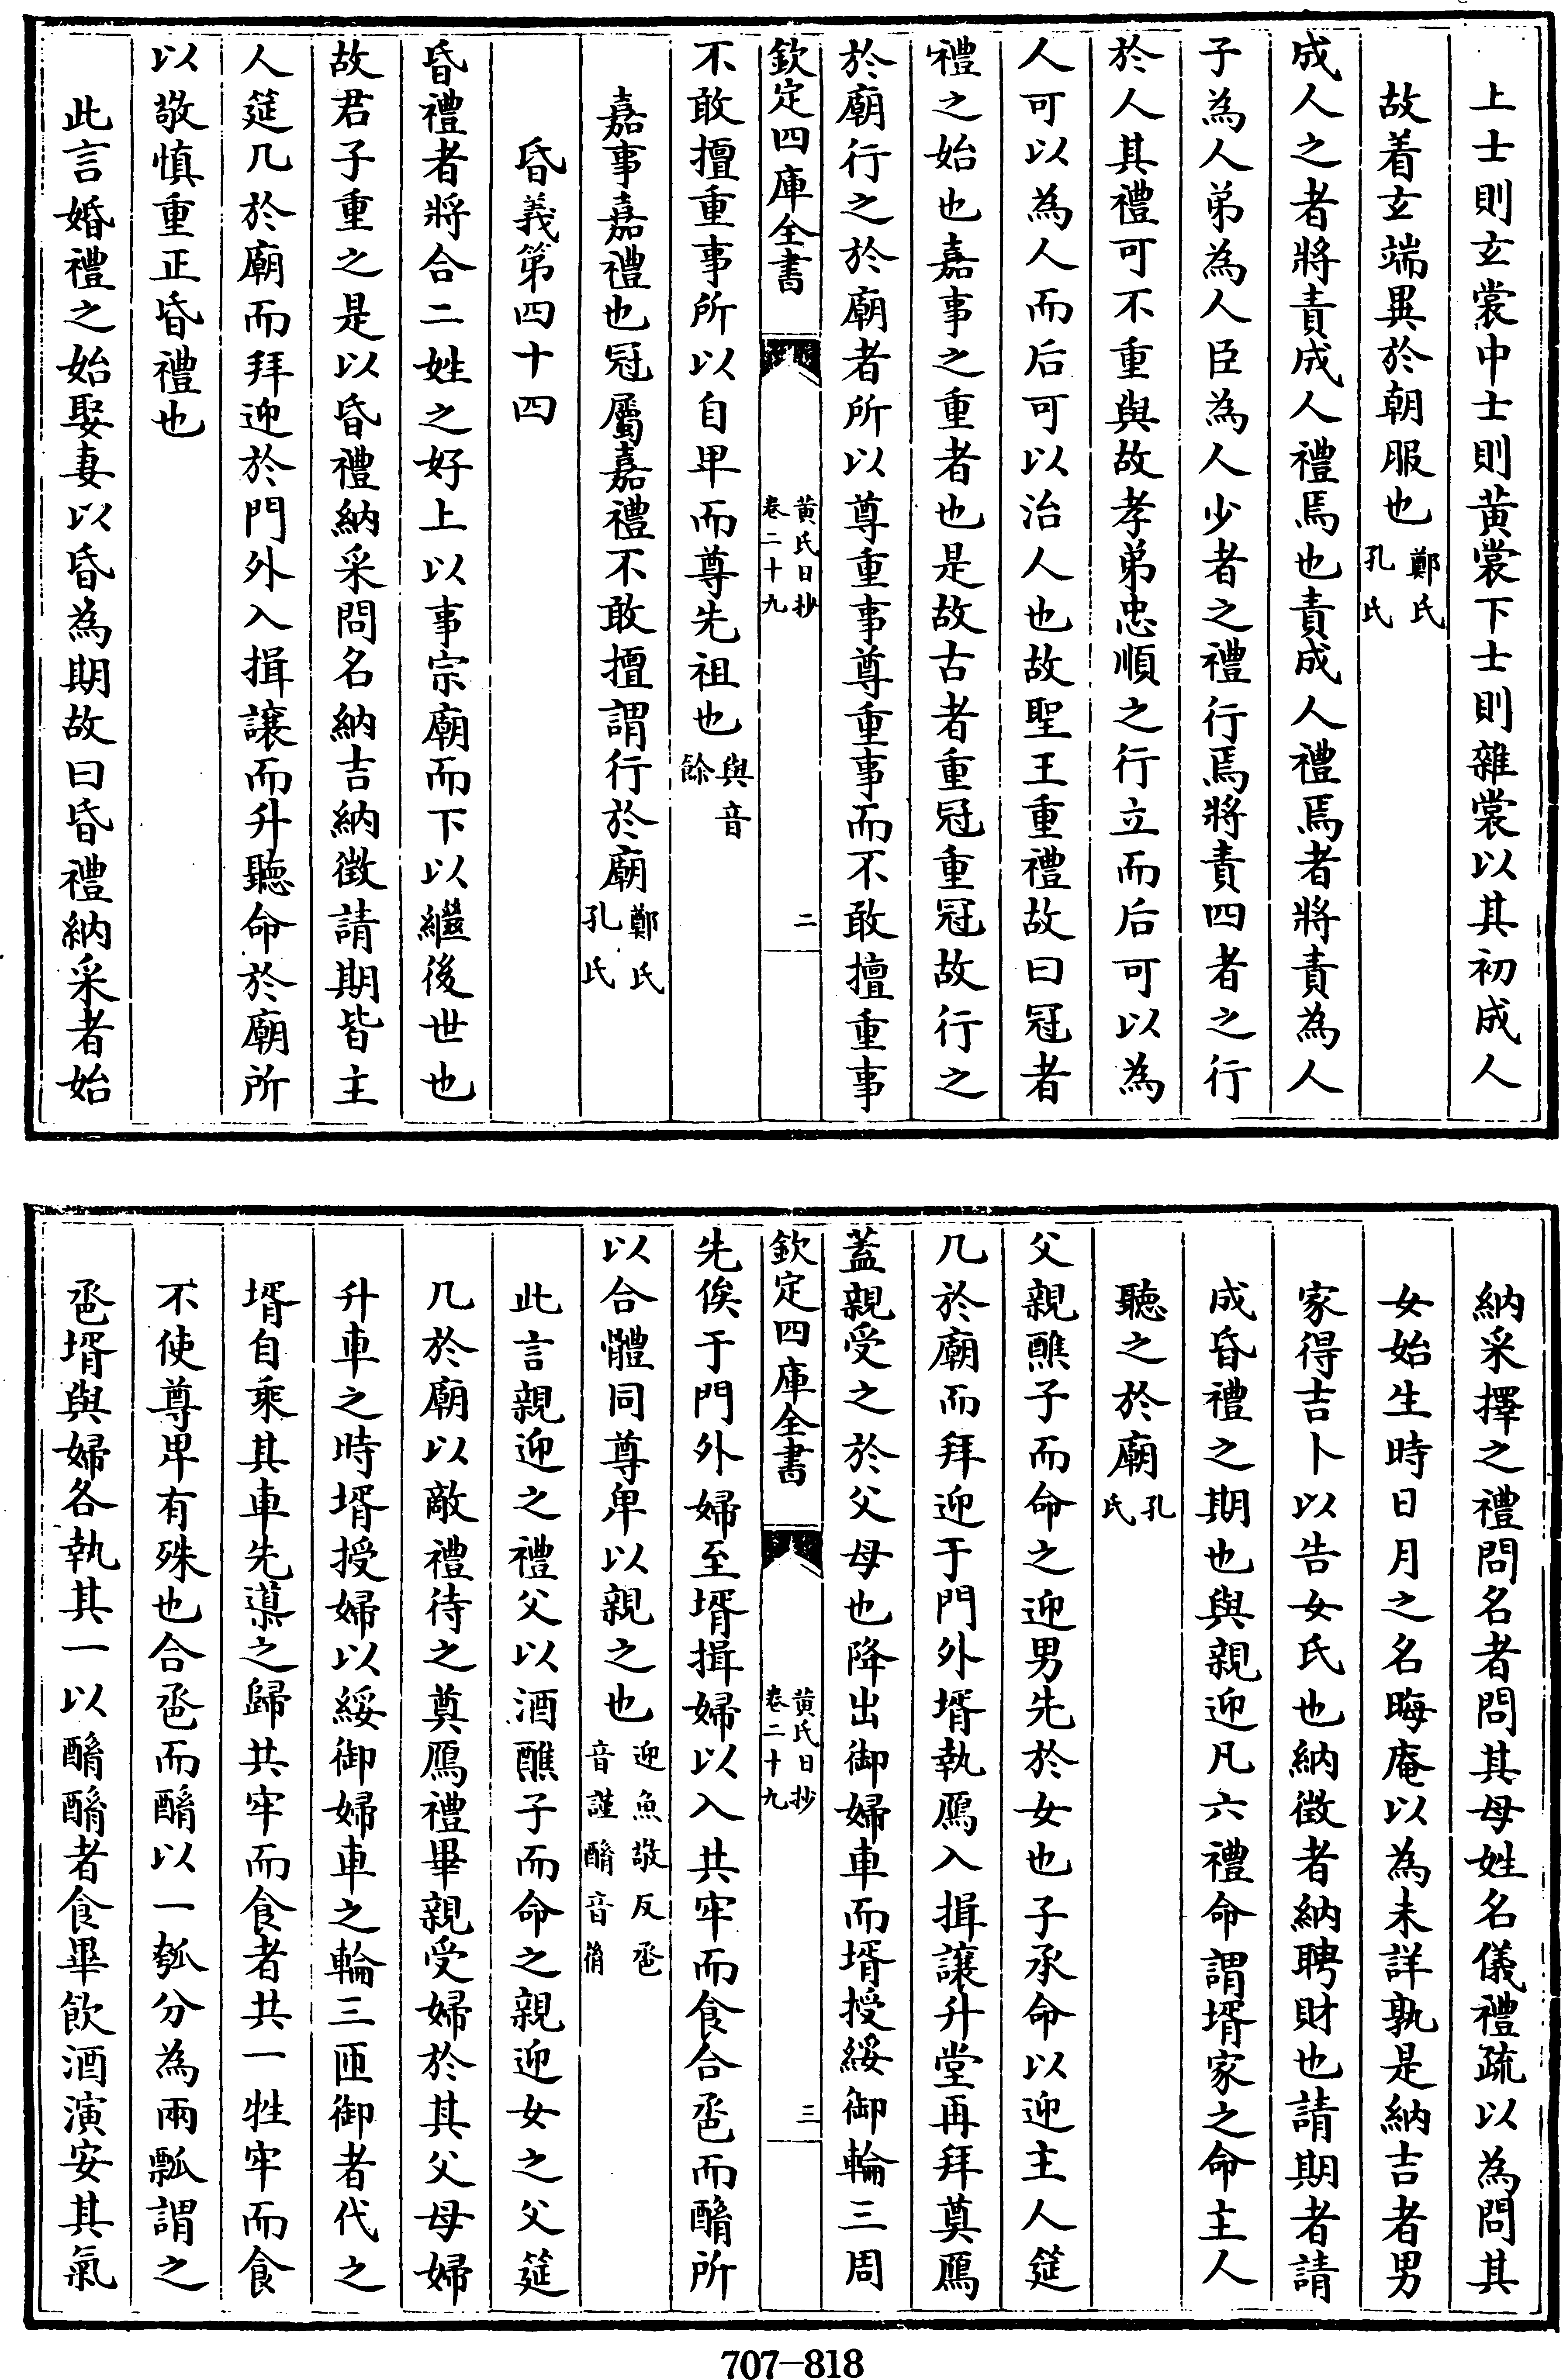 上士則玄裳中士則黄裳下士則雜裳以其初成人
故着玄端異於朝服也鄭氏孔氏
成人之者將責成人禮焉也責成人禮焉者將責為人
子為人弟為人臣為人少者之禮行焉將責四者之行
於人其禮可不重與故孝弟忠順之行立而后可以為
人可以為人而后可以治人也故聖王重禮故曰冠者
禮之始也嘉事之重者也是故古者重冠重冠故行之
於廟行之於廟者所以尊重事尊重事而不敢擅重事
欽定四庫全書 黄氏日抄卷二十九 二
不敢擅重事所以自卑而尊先祖也與音餘
嘉事嘉禮也冠屬嘉禮不敢擅謂行於廟鄭氏孔氏
昏義第四十四
昏禮者將合二姓之好上以事宗廟而下以繼後世也
故君子重之是以昏禮納采問名納吉納徵請期皆主
人筵几於廟而拜迎於門外入揖讓而升聽命於廟所
以敬慎重正昏禮也
此言婚禮之始娶妻以昏為期故曰昏禮納采者始
納采擇之禮問名者問其母姓名儀禮疏以為問其
女始生時日月之名晦庵以為未詳孰是納吉者男
家得吉卜以告女氏也納徵者納聘財也請期者請
成昏禮之期也與親迎凡六禮命謂壻家之命主人
聽之於廟孔氏
父親醮子而命之迎男先於女也子承命以迎主人筵
几於廟而拜迎于門外壻執鴈入揖讓升堂再拜奠鴈
蓋親受之於父母也降出御婦車而壻授綏御輪三周
欽定四庫全書 黄氏日抄卷二十九 三
先俟于門外婦至壻揖婦以入共牢而食合卺而酳所
以合體同尊卑以親之也迎魚敬反卺音謹酳音胤
此言親迎之禮父以酒醮子而命之親迎女之父筵
几於廟以敵禮待之奠鴈禮畢親受婦於其父母婦
升車之時壻授婦以綏御婦車之輪三匝御者代之
壻自乘其車先導之歸共牢而食者共一牲牢而食
不使尊卑有殊也合卺而酳以一瓠分為兩瓢謂之
卺壻與婦各執其一以酳酳者食畢飲酒演安其氣
707-818